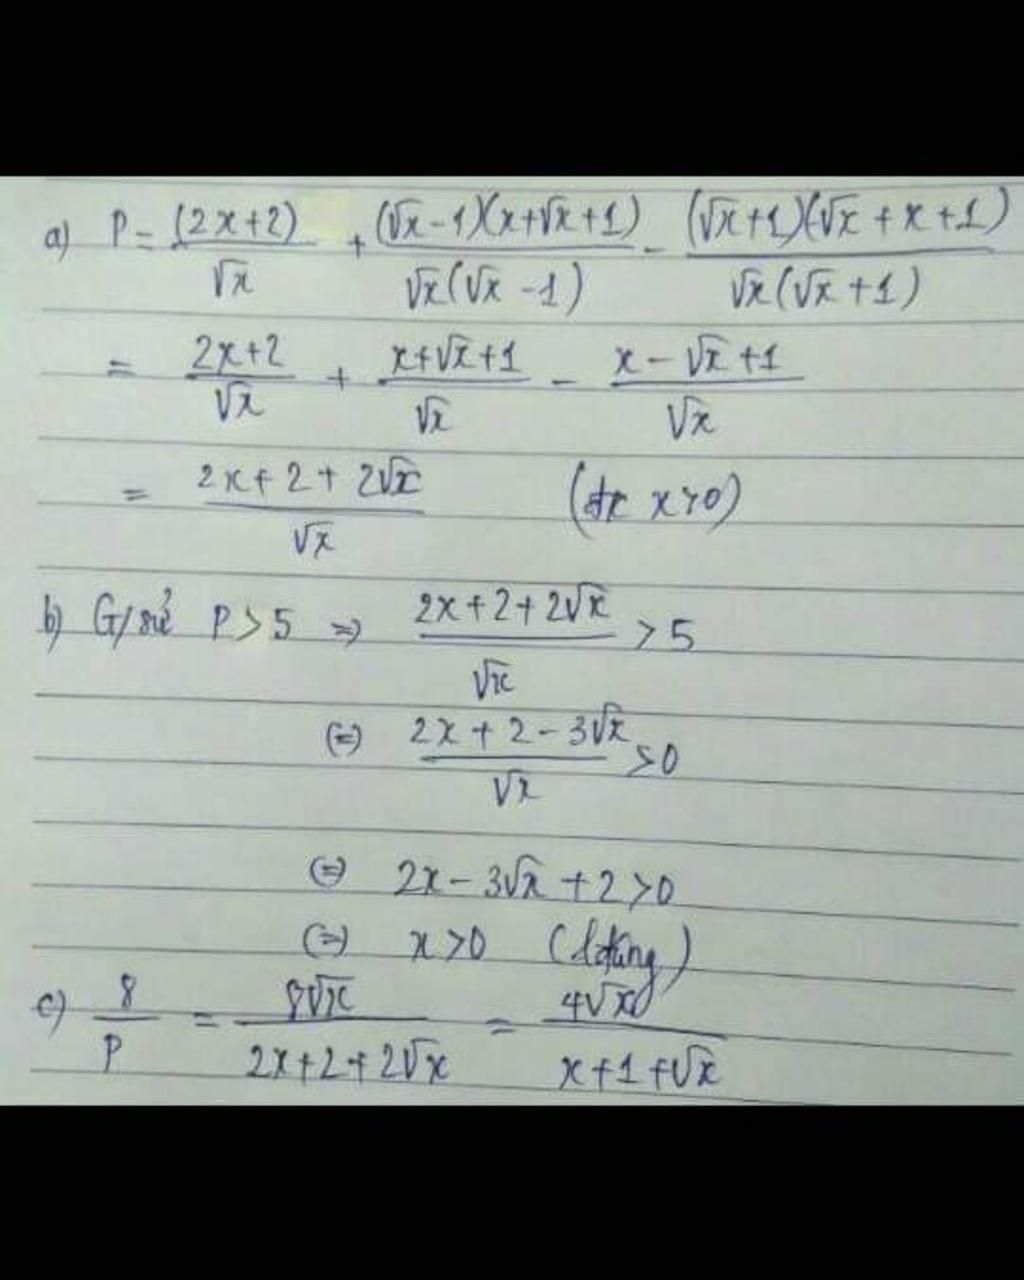 a) P = (2x+2)/√x + (√x-1)(x+√x+1)/√x(√x-1) - (√x+1)(√x+x+1)/√x(√x+1)
= 2x+2/√x + x+√x+1/√x - x-√x+1/√x
= 2x+2+2√x/√x (đk x>0)
b) G/sử P>5 => 2x+2+2√x/√x >5
(=) 2x+2-3√x/√x >0
(=) 2x-3√x+2>0
(=) x>0 (đúng)
c) 8/P = 8√x/2x+2+2√x = 4√x/x+1+√x